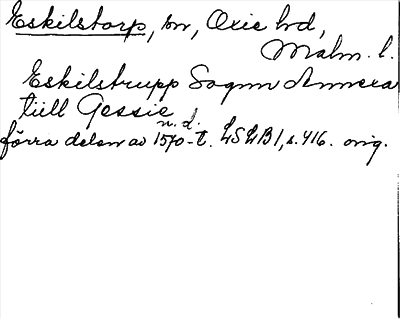 Eskilstorp, sn, Oxie hd,
Malm. l.
Eskilstrupp Sognn Annexa
tiill Gessie
n. d.
förra delen av 1570-t. LSLB1, s. 416. orig.